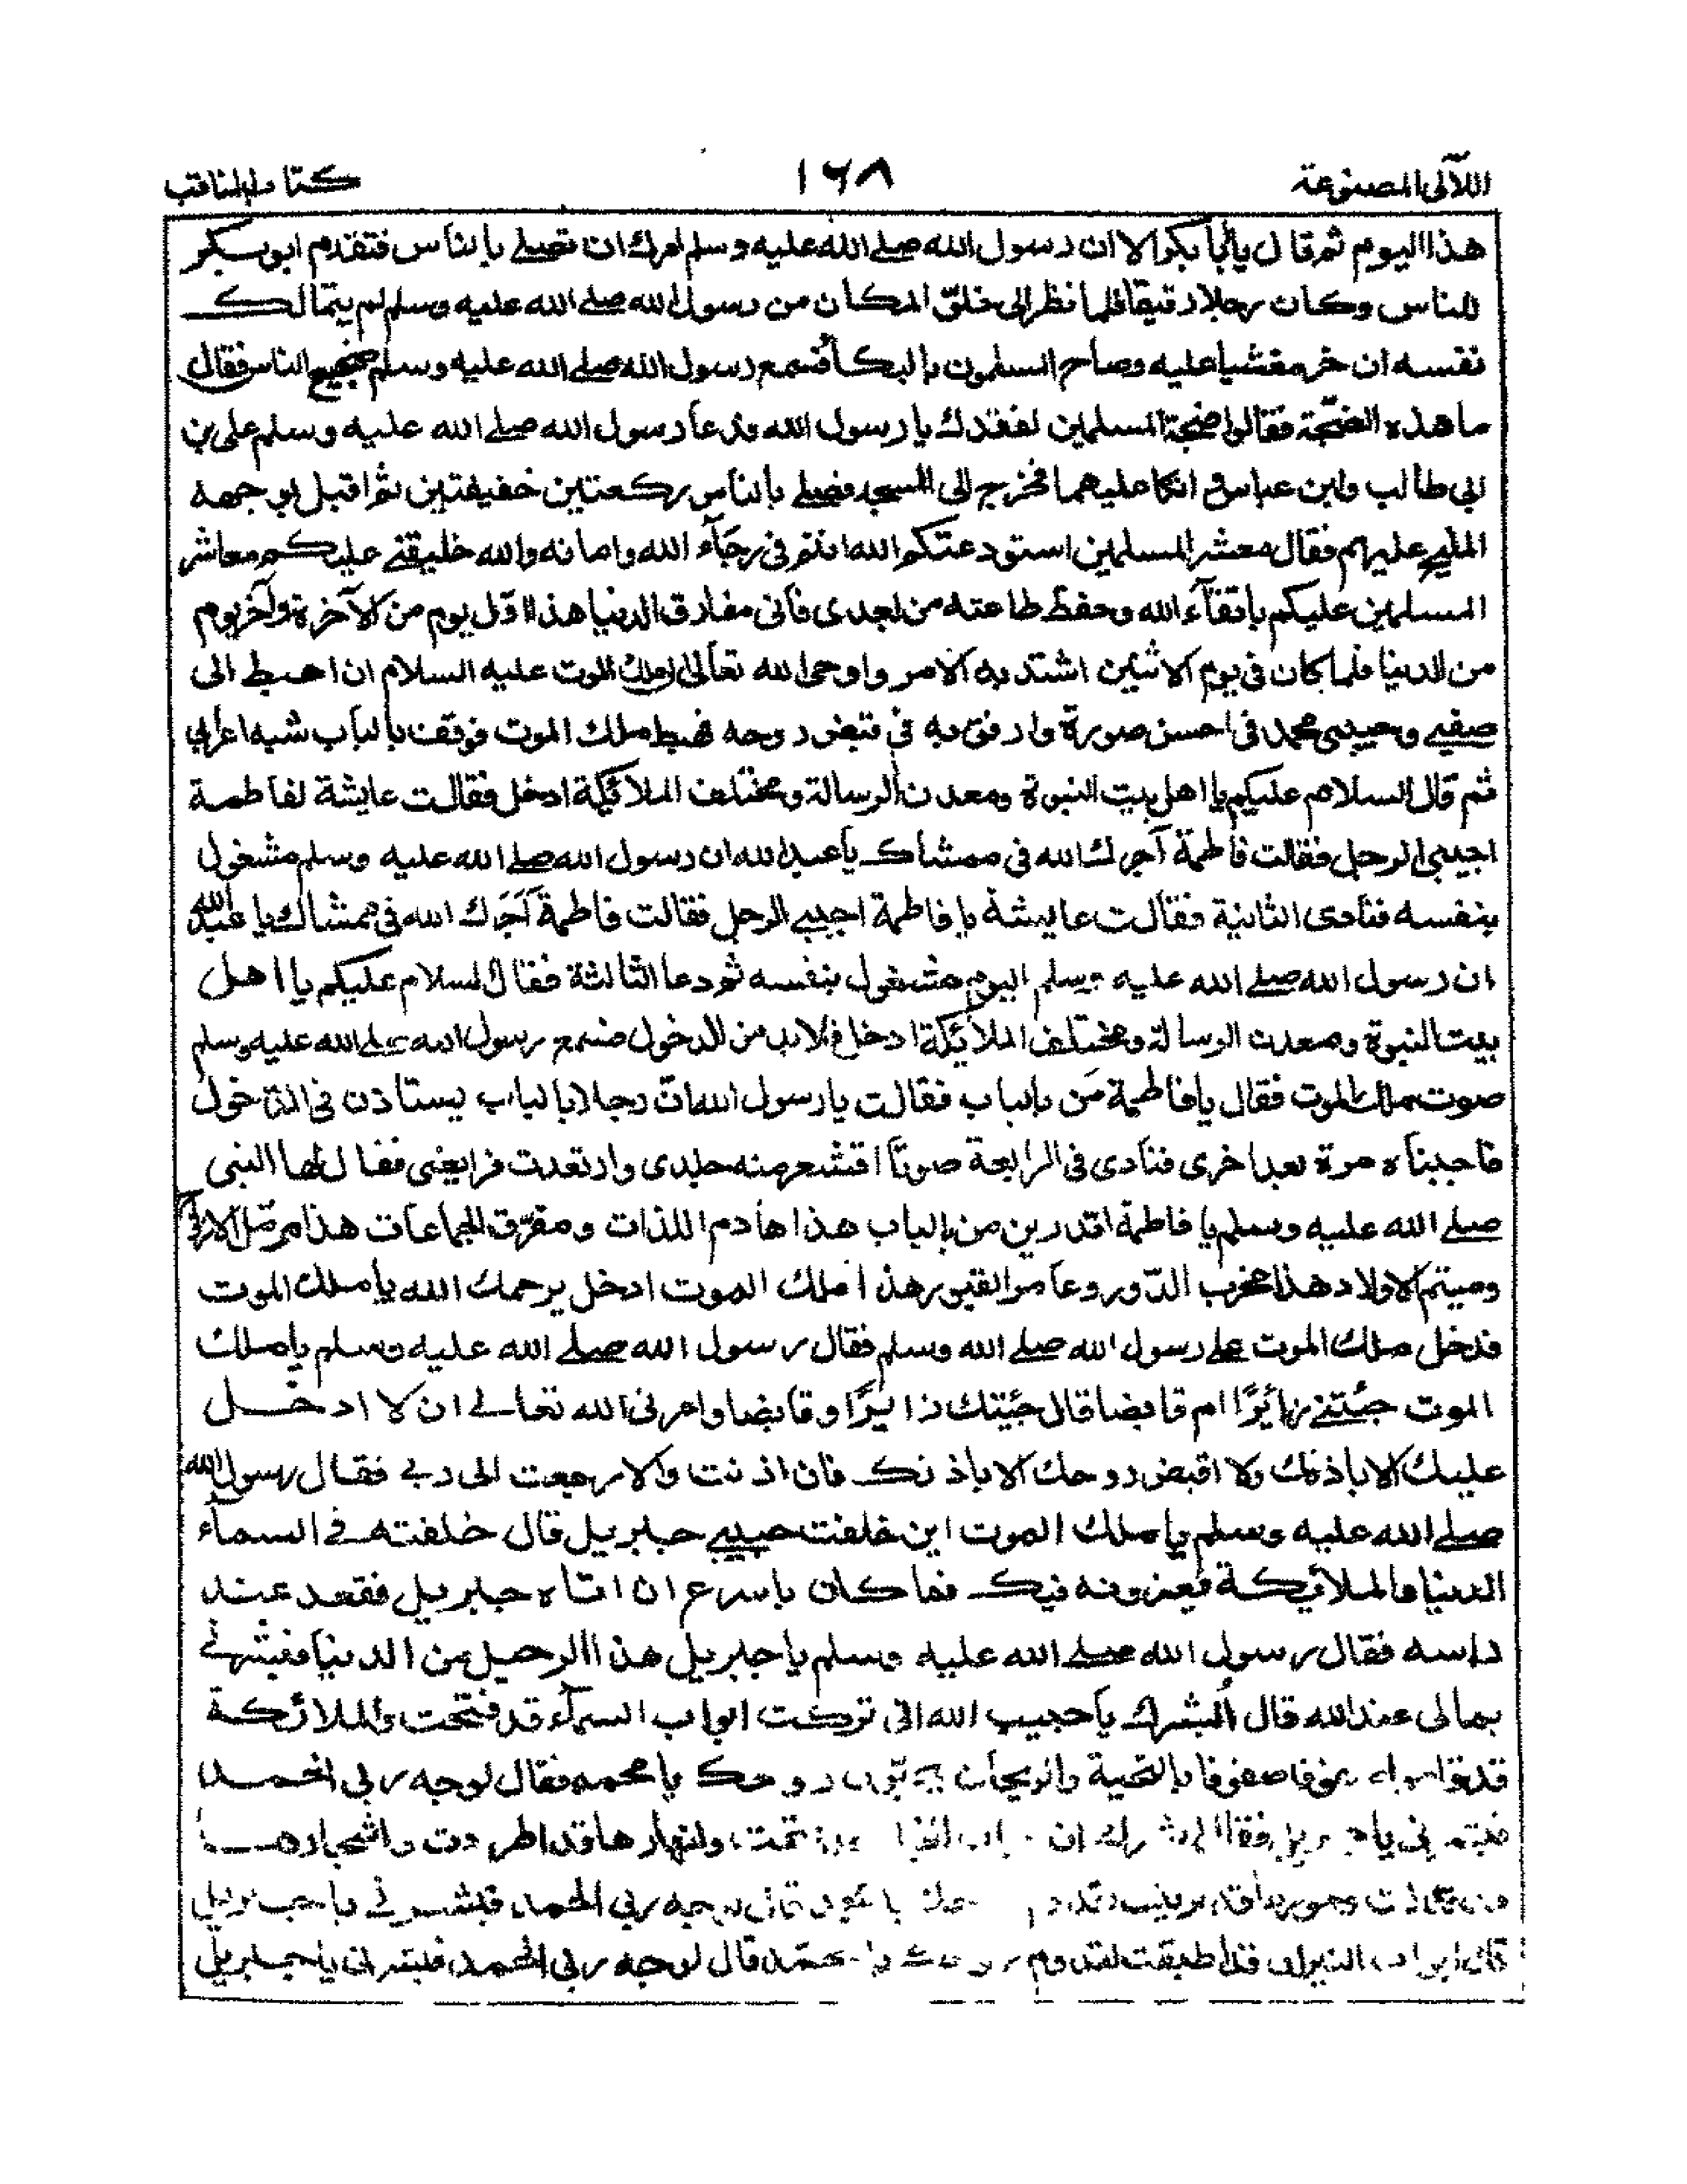 اللآلى المصنوعة
١٦٨
كتاب المناقب
هذا اليوم ثم قال يا أبا بكر الا ان رسول الله صلے الله عليه وسلم امرك ان تصلے بالناس فتقدم ابو بكر
للناس وكان رجلا رقيقا فلما نظر الى خلق المكان من رسول الله صلے الله عليه وسلم لم يتمالك
نفسه ان خر مغشيا عليه وصاح المسلمون بالبكآ فسمع رسول الله صلے الله عليه وسلم ضجيج الناس فقال
ما هذه الضجّة فقالوا ضجة المسلمين لفقدك يا رسول الله فدعا رسول الله صلے الله عليه وسلم على بن
ابى طالب وابن عباس و اتكا عليهما فخرج الى المسجد فصلے بالناس ركعتين خفيفتين ثم اقبل بوجهه
المليح عليهم فقال معشر المسلمين استودعتكم الله انتم فى رجآء الله وامانه والله خليفتے عليكم معاشر
المسلمين عليكم باتقآء الله وحفظ طاعته من بعدى فانى مفارق الدنيا هذا اوّل يوم من الآخرة وآخر يوم
من الدنيا فلما كان فى يوم الاثنين اشتد به الامر واوحى الله تعالى لملك الموت عليه السلام ان اهبط الى
صفيے وحبيبى محمد فى احسن صورة وارفق به فى قبض روحه فهبط ملك الموت فوقف بالباب شبه اعرابي
ثم قال السلام عليكم يا اهل بيت النبوة ومعدن الرسالة ومختلف الملائكة ادخل فقالت عايشة لفاطمة
اجيبى الرجل فقالت فاطمة آجرك الله فى ممشاك يا عبد الله ان رسول الله صلے الله عليه وسلم مشغول
بنفسه فنادى الثانية فقالت عايشة يا فاطمة اجيبے الرجل فقالت فاطمة آجَرَك الله فى ممشاك يا عبد الله
ان رسول الله صلے الله عليه وسلم اليوم مشغول بنفسه ثم دعا الثالثة فقال السلام عليكم يا اهل
بيت النبوة ومعدن الرسالة ومختلف الملائكة ادخل فلا بد من الدخول فسمع رسول الله صلے الله عليه وسلم
صوت ملك الموت فقال يا فاطمة مَن بالباب فقالت يا رسول الله انّ رجلا بالباب يستاذن فى الدّخول
فاجبناه مرة بعد اخرى فنادى فى الرابعة صوتًا اقشعر منه جلدى وارتعدت فرايصى فقال لها النبى
صلے الله عليه وسلم يا فاطمة اتدرين من بالباب هذا هادم اللذات ومفرّق الجماعات هذا مرمّل الازواج
وميتم الاولاد هذا مخرب الدّور وعامر القبور هذا ملك الموت ادخل يرحمك الله يا ملك الموت
فدخل ملك الموت علے رسول الله صلے الله وسلم فقال رسول الله صلے الله عليه وسلم يا ملك
الموت جئتنے زائرًا ام قابضا قال جئتك زايرًا وقابضا وامرنى الله تعالے ان لا ادخل
عليك الا باذنك ولا اقبض روحك الا باذنك فان اذنت والا رجعت الى ربے فقال رسول الله
صلے الله عليه وسلم يا ملك الموت اين خلفت حبيبے جبريل قال خلفته فے السمآء
الدنيا والملائكة يعزونه فيك فما كان باسرع ان اتاه جبريل فقعد عند
راسه فقال رسول الله صلے الله عليه وسلم يا جبريل هذا الرحيل من الدنيا فبشرنے
بمالى عند الله قال اُبشرك يا حبيب الله انى تركت ابواب السمآء قد فتحت والملائكة
قد قاموا صفوفا صفوفا بالتحية والريحان يحيّون روحك يا محمد فقال لوجه ربى الحمد
فبشرنى يا جبريل فقال ابشرك ان ابواب الجنان قد فتحت وانهارها قد اطردت واشجارها
قد تدلت وحورها قد تزينت لقدوم روحك يا محمد قال لوجه ربى الحمد فبشرنے يا جبريل
قال ابواب النيران قد اطبقت لقدوم روحك يا محمّد قال لوجه ربى الحمد فبشرنى يا جبريل